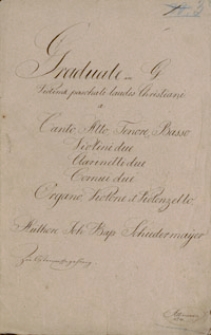 Graduale in G
Victimae paschali laudes Christiani
a
Canto, Alto, Tenore, Basso
Violini due
Clarinetti due
Cornui due
Organo, Violone et Violonzello
Authore Joh Bap Schiedermayer